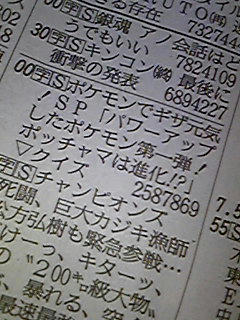 する存在 7327445
00字S銀魂 アノ会話はど
うでもいい 7824109
30字Sキンコン㈱ 最後に
衝撃の発表 6894227
00字Sポケモンでギザ元気
!SP「パワーアップ
したポケモン第一弾!
ポッチャマは進化!?」
▽クイズ 2587869
字Sチャンピオンズ
死闘、巨大カジキ漁師
方弘樹も緊急参戦…
だけーっ、キターッ、
〝200㌔級大物〟
、暴れる、突
最速最強
7.5
55S